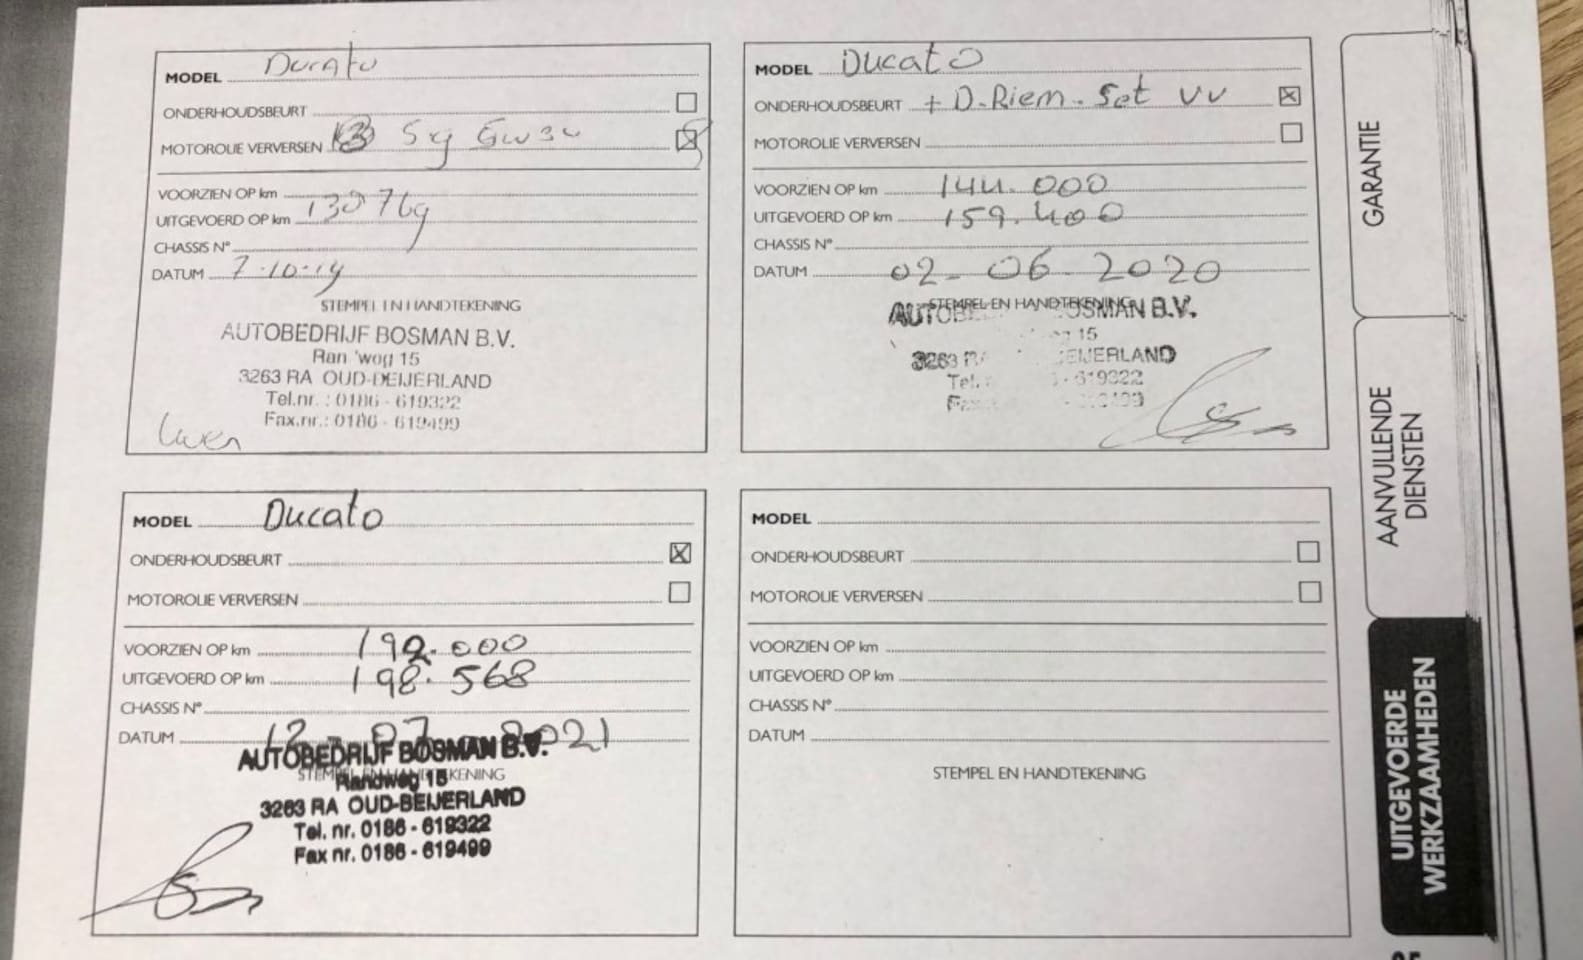 MODEL Ducato
ONDERHOUDSBEURT
MOTOROLIE VERVERSEN 5w30
VOORZIEN OP km
UITGEVOERD OP km 130769
CHASSIS N°
DATUM 7-10-19
STEMPEL EN HANDTEKENING
AUTOBEDRIJF BOSMAN B.V.
Ran weg 15
3263 RA OUD-BEIJERLAND
Tel.nr. : 0186 - 619322
Fax.nr.: 0186 - 619499
MODEL Ducato
ONDERHOUDSBEURT + D-Riem-Set VV
MOTOROLIE VERVERSEN
VOORZIEN OP km 144.000
UITGEVOERD OP km 159.400
CHASSIS N°
DATUM 02-06-2020
STEMPEL EN HANDTEKENING
AUTOBE BOSMAN B.V.
15
3263 RA BEIJERLAND
Tel. - 619322
MODEL Ducato
ONDERHOUDSBEURT
MOTOROLIE VERVERSEN
VOORZIEN OP km 192.000
UITGEVOERD OP km 198.568
CHASSIS N°
DATUM 12-07-2021
STEMPEL EN HANDTEKENING
AUTOBEDRIJF BOSMAN B.V.
Randweg 15
3263 RA OUD-BEIJERLAND
Tel. nr. 0186 - 619322
Fax nr. 0186 - 619499
MODEL
ONDERHOUDSBEURT
MOTOROLIE VERVERSEN
VOORZIEN OP km
UITGEVOERD OP km
CHASSIS N°
DATUM
STEMPEL EN HANDTEKENING
GARANTIE
AANVULLENDE
DIENSTEN
UITGEVOERDE
WERKZAAMHEDEN